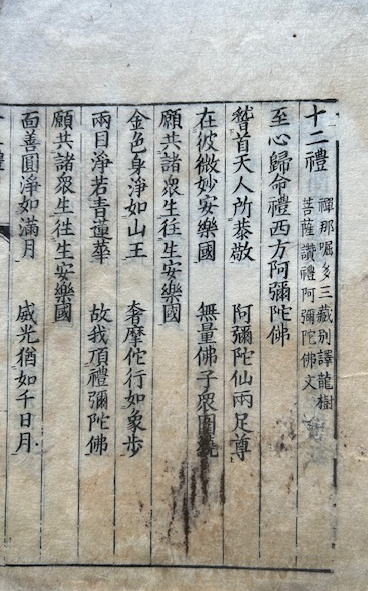 十二禮
禪那崛多三藏別譯龍樹
菩薩讚禮阿彌陀佛文
至心歸命禮西方阿彌陀佛
稽首天人所恭敬　阿彌陀仙兩足尊
在彼微妙安樂國　無量佛子衆圍繞
願共諸衆生往生安樂國
金色身淨如山王　奢摩佗行如象步
兩目淨若青蓮華　故我頂禮彌陀佛
願共諸衆生往生安樂國
面善圓淨如滿月　威光猶如千日月